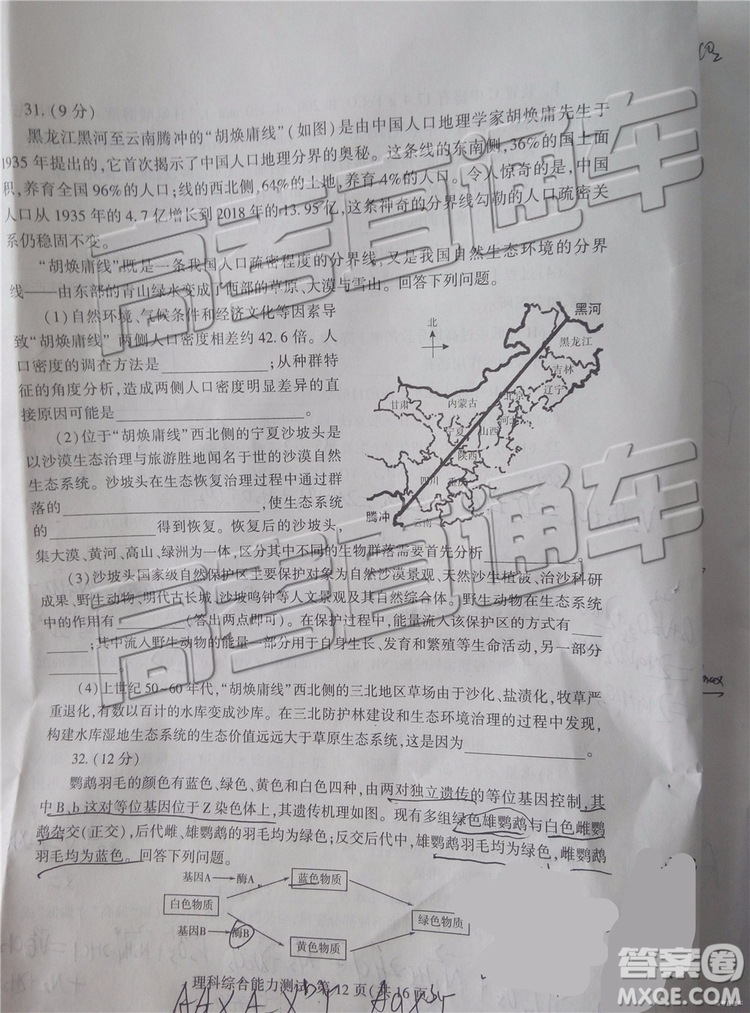 31.(9分)
黑龙江黑河至云南腾冲的“胡焕庸线”(如图)是由中国人口地理学家胡焕庸先生于
1935年提出的,它首次揭示了中国人口地理分界的奥秘。这条线的东南侧,36%的国土面
积,养育全国96%的人口;线的西北侧,64%的土地,养育4%的人口。令人惊奇的是,中国
人口从1935年的4.7亿增长到2018年的13.95亿,这条神奇的分界线勾勒的人口疏密关
系仍稳固不变。
“胡焕庸线”既是一条我国人口疏密程度的分界线,又是我国自然生态环境的分界
线——由东部的青山绿水变成了西部的草原、大漠与雪山。回答下列问题。
(1)自然环境、气候条件和经济文化等因素导
致“胡焕庸线”两侧人口密度相差约42.6倍。人
口密度的调查方法是 ;从种群特
征的角度分析,造成两侧人口密度明显差异的直
接原因可能是 。
(2)位于“胡焕庸线”西北侧的宁夏沙坡头是
以沙漠生态治理与旅游胜地闻名于世的沙漠自然
生态系统。沙坡头在生态恢复治理过程中通过群
落的 ,使生态系统
的 得到恢复。恢复后的沙坡头,
集大漠、黄河、高山、绿洲为一体,区分其中不同的生物群落需要首先分析 。
北
黑河
黑龙江
吉林
辽宁
内蒙古
甘肃
北京
河北
宁夏
山西
陕西
四川
腾冲
云南
(3)沙坡头国家级自然保护区主要保护对象为自然沙漠景观、天然沙生植被、治沙科研
成果、野生动物、明代古长城、沙坡鸣钟等人文景观及其自然综合体。野生动物在生态系统
中的作用有 (答出两点即可)。在保护过程中,能量流入该保护区的方式有
;其中流入野生动物的能量一部分用于自身生长、发育和繁殖等生命活动,另一部分
。
(4)上世纪50~60年代,“胡焕庸线”西北侧的三北地区草场由于沙化、盐渍化,牧草严
重退化,有数以百计的水库变成沙库。在三北防护林建设和生态环境治理的过程中发现,
构建水库湿地生态系统的生态价值远远大于草原生态系统,这是因为 。
32.(12分)
鹦鹉羽毛的颜色有蓝色、绿色、黄色和白色四种,由两对独立遗传的等位基因控制,其
中B、b这对等位基因位于Z染色体上,其遗传机理如图。现有多组绿色雄鹦鹉与白色雌鹦
鹉杂交(正交),后代雌、雄鹦鹉的羽毛均为绿色;反交后代中,雄鹦鹉羽毛均为绿色,雌鹦鹉
羽毛均为蓝色。回答下列问题。
基因A→酶A
蓝色物质
白色物质
绿色物质
基因B→酶B
黄色物质
理科综合能力测试 第12页(共16页)
高考直通车
高考直通车
高考直通车
答案圈